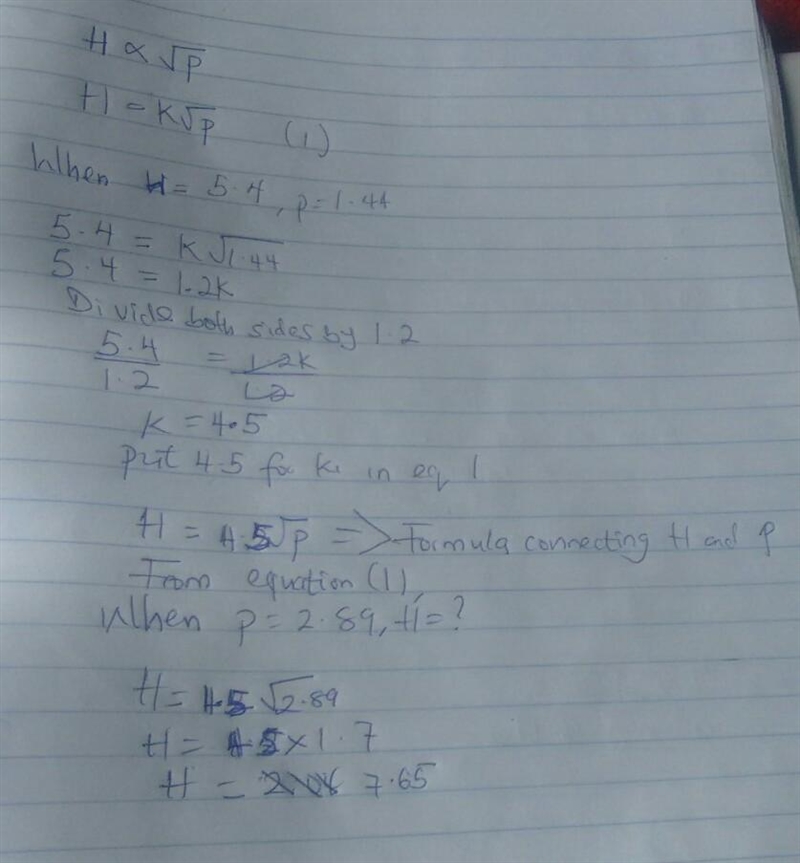 H ∝ √p
H = K√p (1)
When H = 5.4, p = 1.44
5.4 = K√1.44
5.4 = 1.2K
Divide both sides by 1.2
5.4/1.2 = 1.2K/1.2
K = 4.5
put 4.5 for K in eq 1
H = 4.5√p => Formula connecting H and p
From equation (1),
When p = 2.89, H = ?
H = 4.5√2.89
H = 4.5 × 1.7
H = 7.65